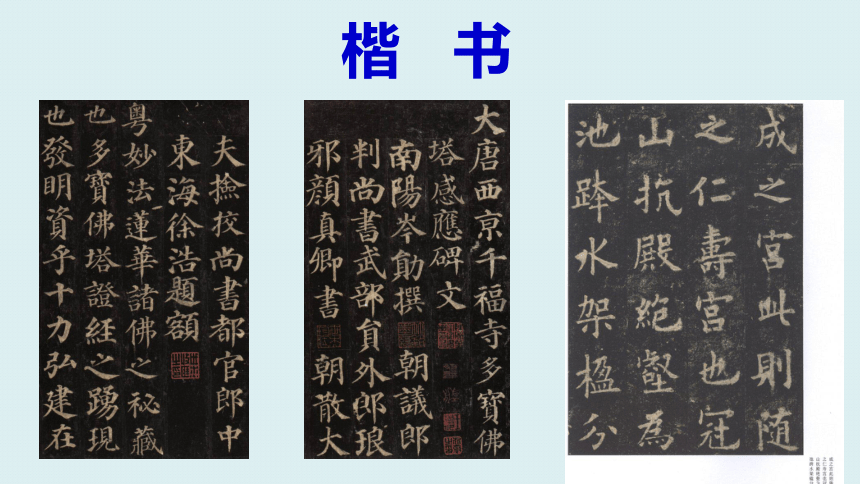 楷 书
夫撿挍尚書都官郎中
東海徐浩題額
粤妙法蓮華諸佛之秘藏
也多寶佛塔證經之踴現
也發明資乎十力弘建在
大唐西京千福寺多寶佛
塔感應碑文
南陽岑勛撰 朝議郎
判尚書武部員外郎琅
邪顔真卿書 朝散大
成之宮此則随
之仁壽宮也冠
山抗殿絕壑為
池跨水架楹分